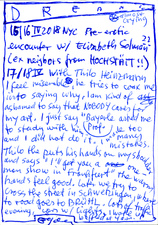 DREAMS
crying
15/16 IV 2018 NYC Pre-erotic
encounter with Elisabeth Schmirl ??
(ex neighbors from HOCHSTÄTT!!)
17/18 IV With Thilo Heinzmann,
I feel miserable, he tries to coax me
into saying why, I am kind of
ashamed to say that NOBODY cares for
my art, I just say "Bayrle asked me
to study with him, Prof., too
and I did not do it." "many
mistakes.
Thilo the puts his hands on my shoulders
and says "I'll get you a one
man show in Frankfurt" the warm
hands feel good. Later we try to
cross the street in Schwetzingen where
the road goes to Brühl. Later, late
evening,